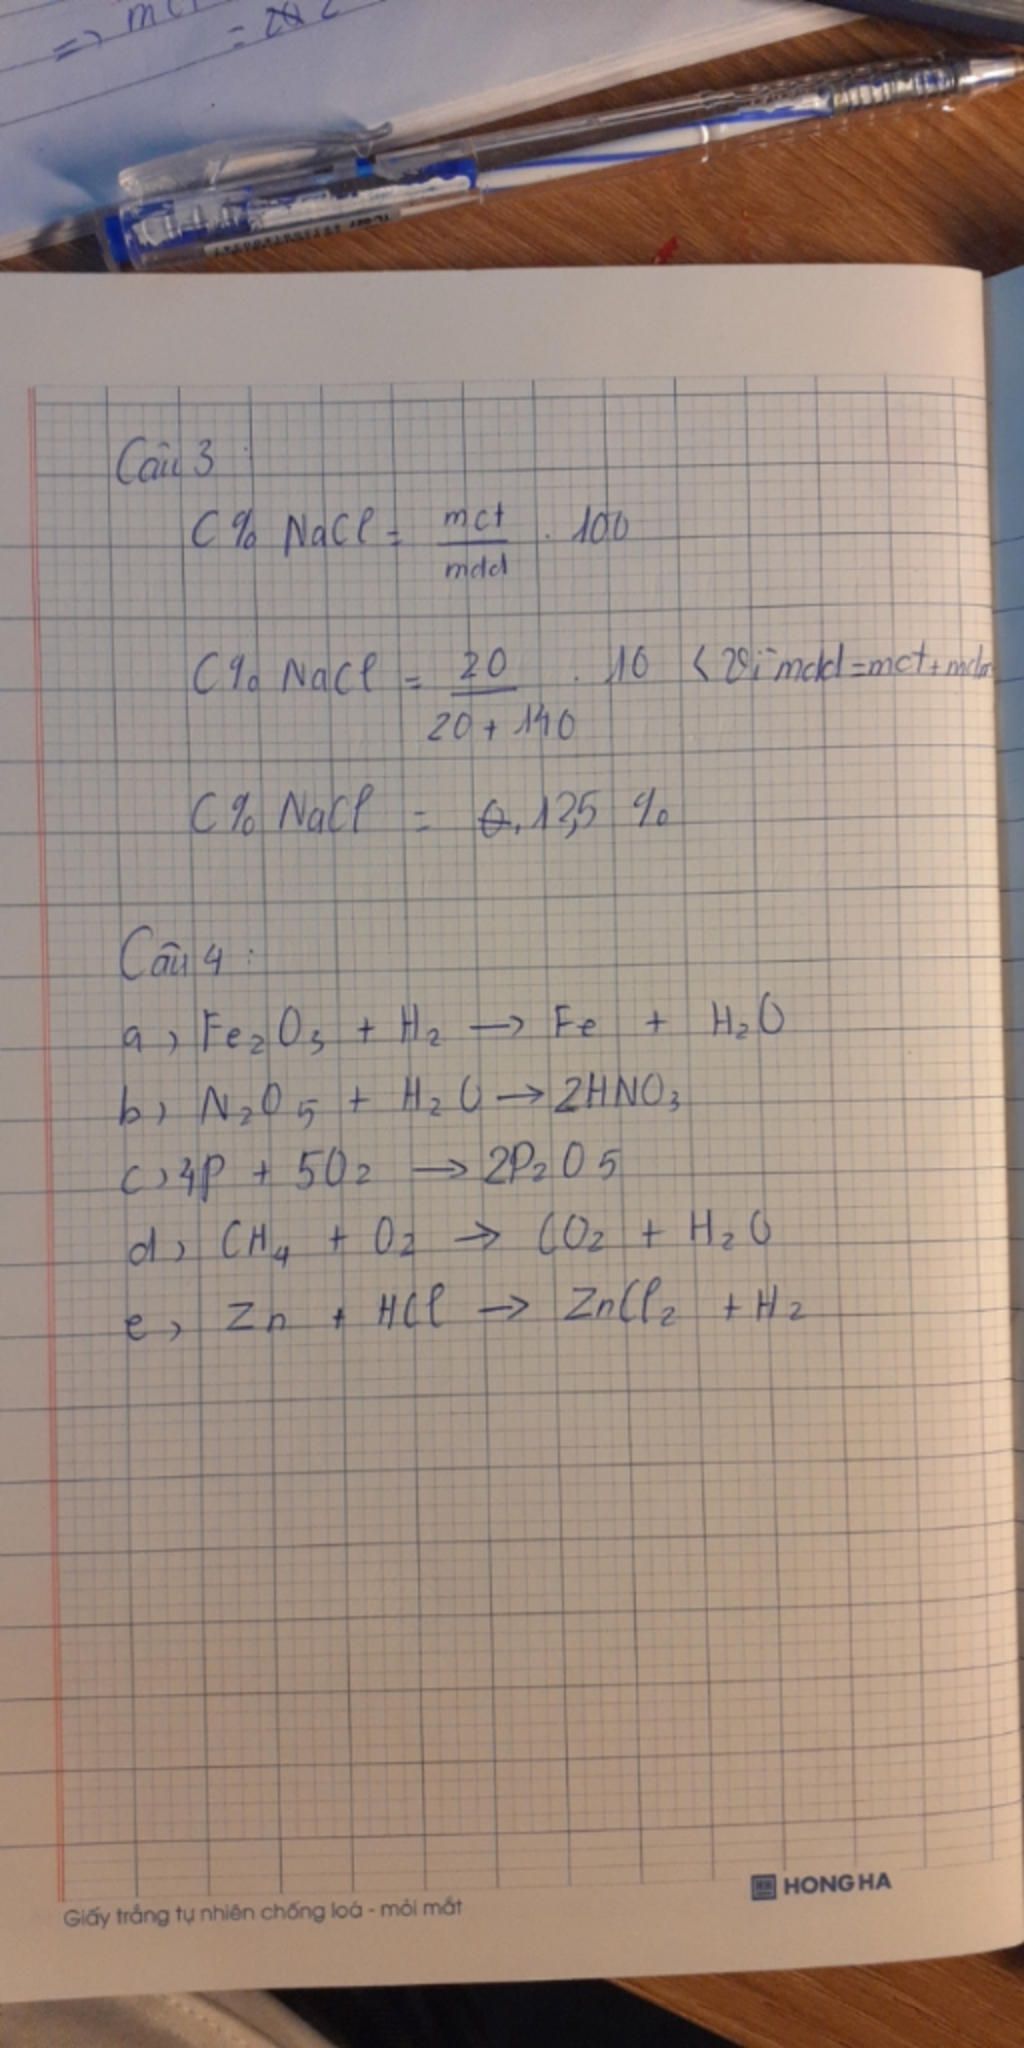 => mct
= 20
Câu 3:
C% NaCl = mct / mdd . 100
C% NaCl = 20 / 20 + 140 . 10 < Vì mdd = mct + mdm
C% NaCl = 0,12,5 %
Câu 4:
a, Fe2O3 + H2 → Fe + H2O
b, N2O5 + H2O → 2HNO3
c, 4P + 5O2 → 2P2O5
d, CH4 + O2 → CO2 + H2O
e, Zn + HCl → ZnCl2 + H2
HONG HA
Giấy trắng tự nhiên chống loá - mỏi mắt